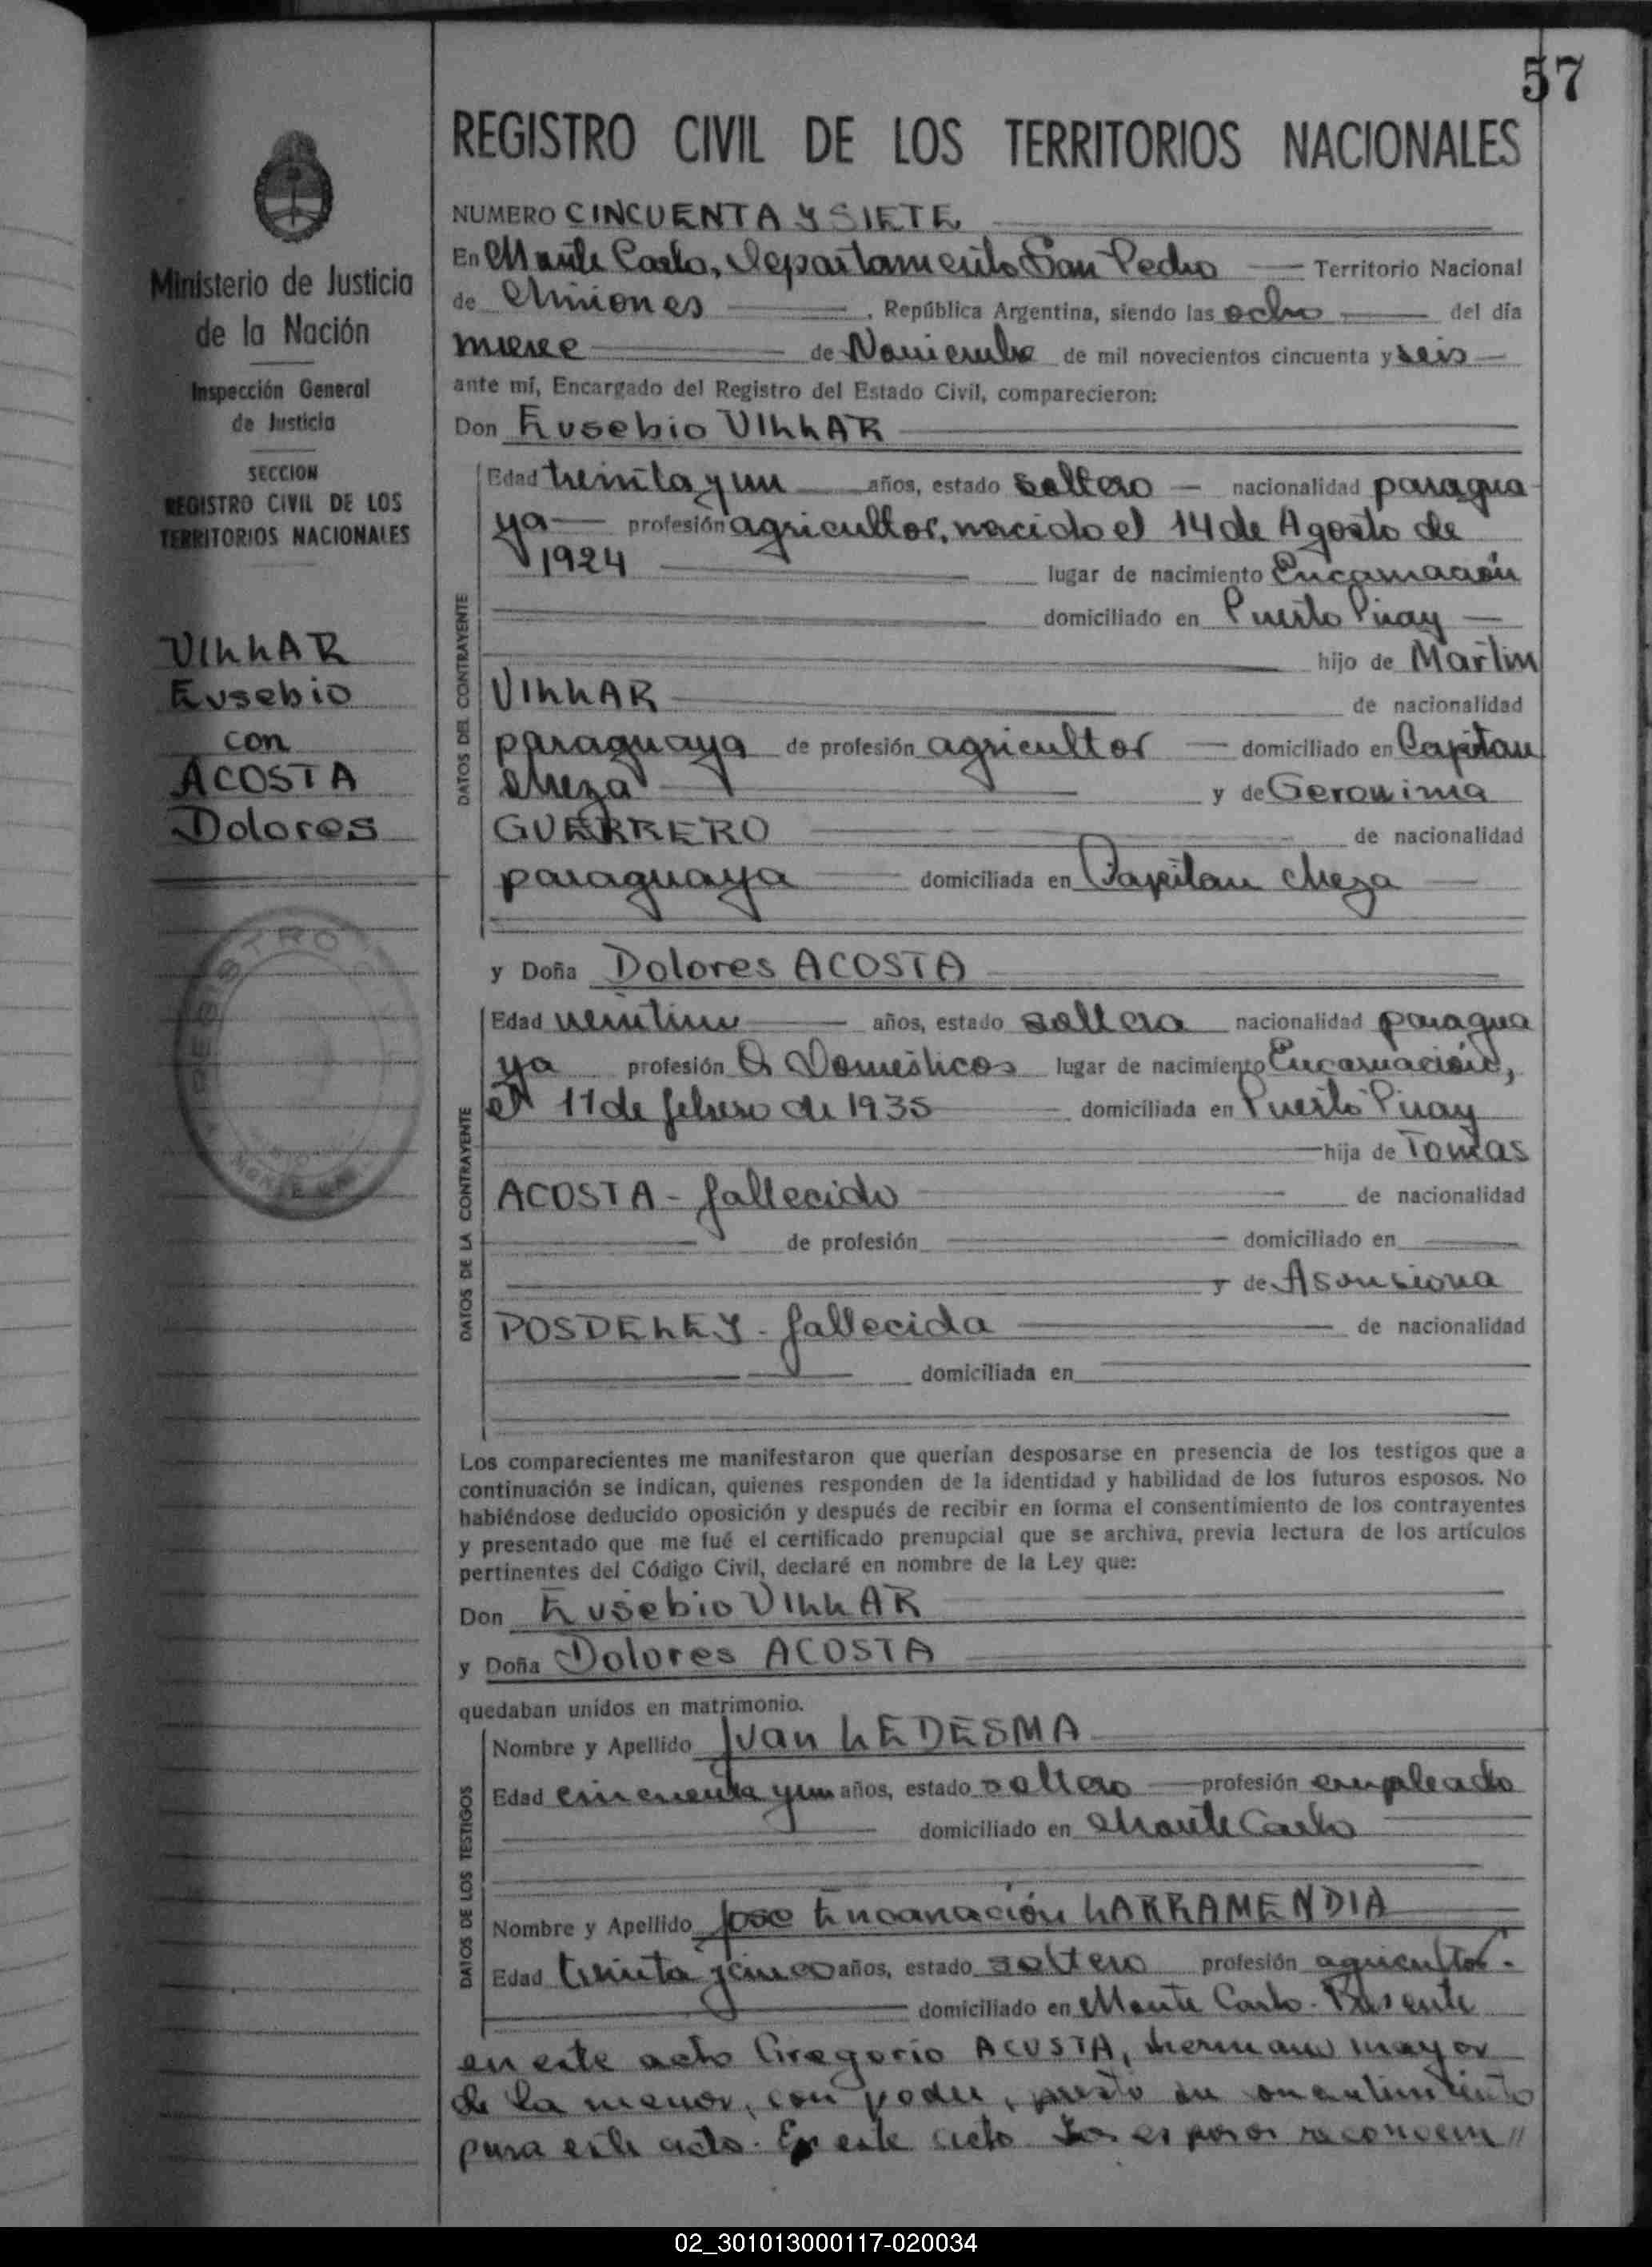 57
Ministerio de Justicia
de la Nación
Inspección General
de Justicia
SECCION
REGISTRO CIVIL DE LOS
TERRITORIOS NACIONALES
VILLAR
Eusebio
con
ACOSTA
Dolores
REGISTRO
REGISTRO CIVIL DE LOS TERRITORIOS NACIONALES
NUMERO CINCUENTA Y SIETE
En Monte Carlo, Departamento San Pedro Territorio Nacional
de Misiones , República Argentina, siendo las ocho del día
nueve de Noviembre de mil novecientos cincuenta y seis
ante mí, Encargado del Registro del Estado Civil, comparecieron:
Don Eusebio VILLAR
DATOS DEL CONTRAYENTE
Edad treinta y un años, estado soltero nacionalidad paragua
ya profesión agricultor, nacido el 14 de Agosto de
1924 lugar de nacimiento Encarnación
domiciliado en Puerto Piray
hijo de Martin
VILLAR de nacionalidad
paraguaya de profesión agricultor domiciliado en Capitan
Meza y de Geronima
GUERRERO de nacionalidad
paraguaya domiciliada en Capitan Meza
y Doña Dolores ACOSTA
DATOS DE LA CONTRAYENTE
Edad veintiun años, estado soltera nacionalidad paragua
ya profesión Q Domésticos lugar de nacimiento Encarnación,
el 11 de febrero de 1935 domiciliada en Puerto Piray
hija de Tomas
ACOSTA - fallecido de nacionalidad
de profesión domiciliado en
y de Asunciona
POSDELEY - fallecida de nacionalidad
domiciliada en
Los comparecientes me manifestaron que querían desposarse en presencia de los testigos que a
continuación se indican, quienes responden de la identidad y habilidad de los futuros esposos. No
habiéndose deducido oposición y después de recibir en forma el consentimiento de los contrayentes
y presentado que me fué el certificado prenupcial que se archiva, previa lectura de los artículos
pertinentes del Código Civil, declaré en nombre de la Ley que:
Don Eusebio VILLAR
y Doña Dolores ACOSTA
quedaban unidos en matrimonio.
DATOS DE LOS TESTIGOS
Nombre y Apellido Juan LEDESMA
Edad cincuenta y un años, estado soltero profesión empleado
domiciliado en Monte Carlo
Nombre y Apellido Jose Encanación LARRAMENDIA
Edad treinta y cinco años, estado soltero profesión agricultor.
domiciliado en Monte Carlo. Presente
en este acto Gregorio ACOSTA, hermano mayor
de la menor, con poder, presto su
para este acto. En este acto los esposos reconocen //
02_301013000117-020034